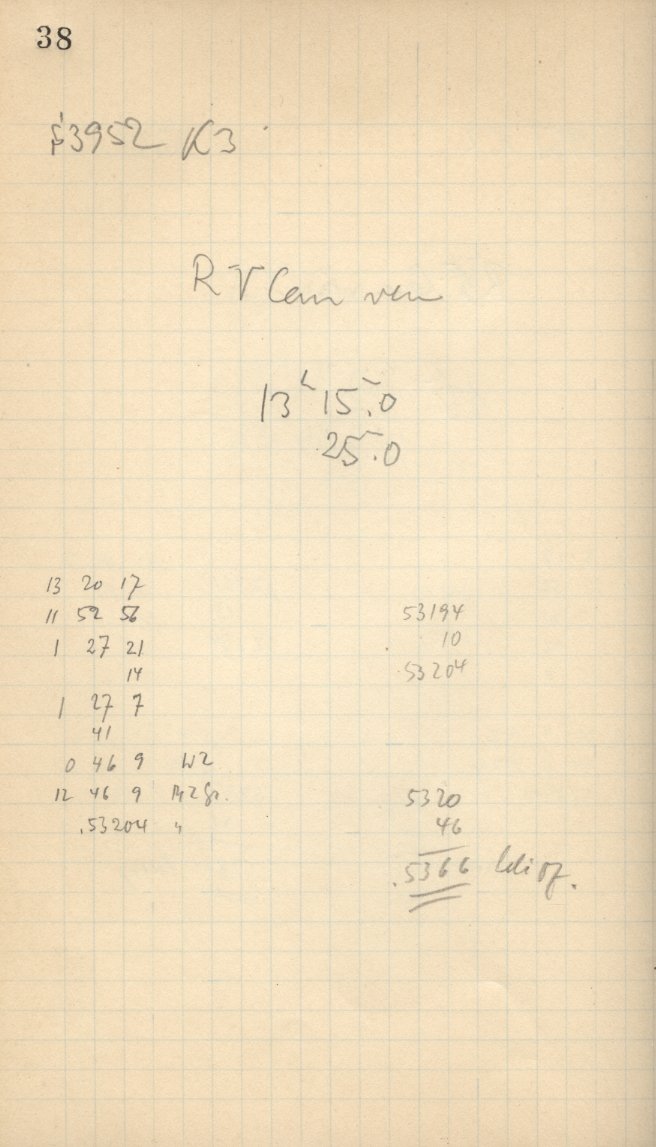 38
3952 K3
RV Can ven
13ʰ 15.0
25.0
13 20 17
11 52 56
1 27 21
14
1 27 7
41
0 46 9 WZ
12 46 9 MZGr.
.53204 "
53194
10
53204
5320
46
.5366